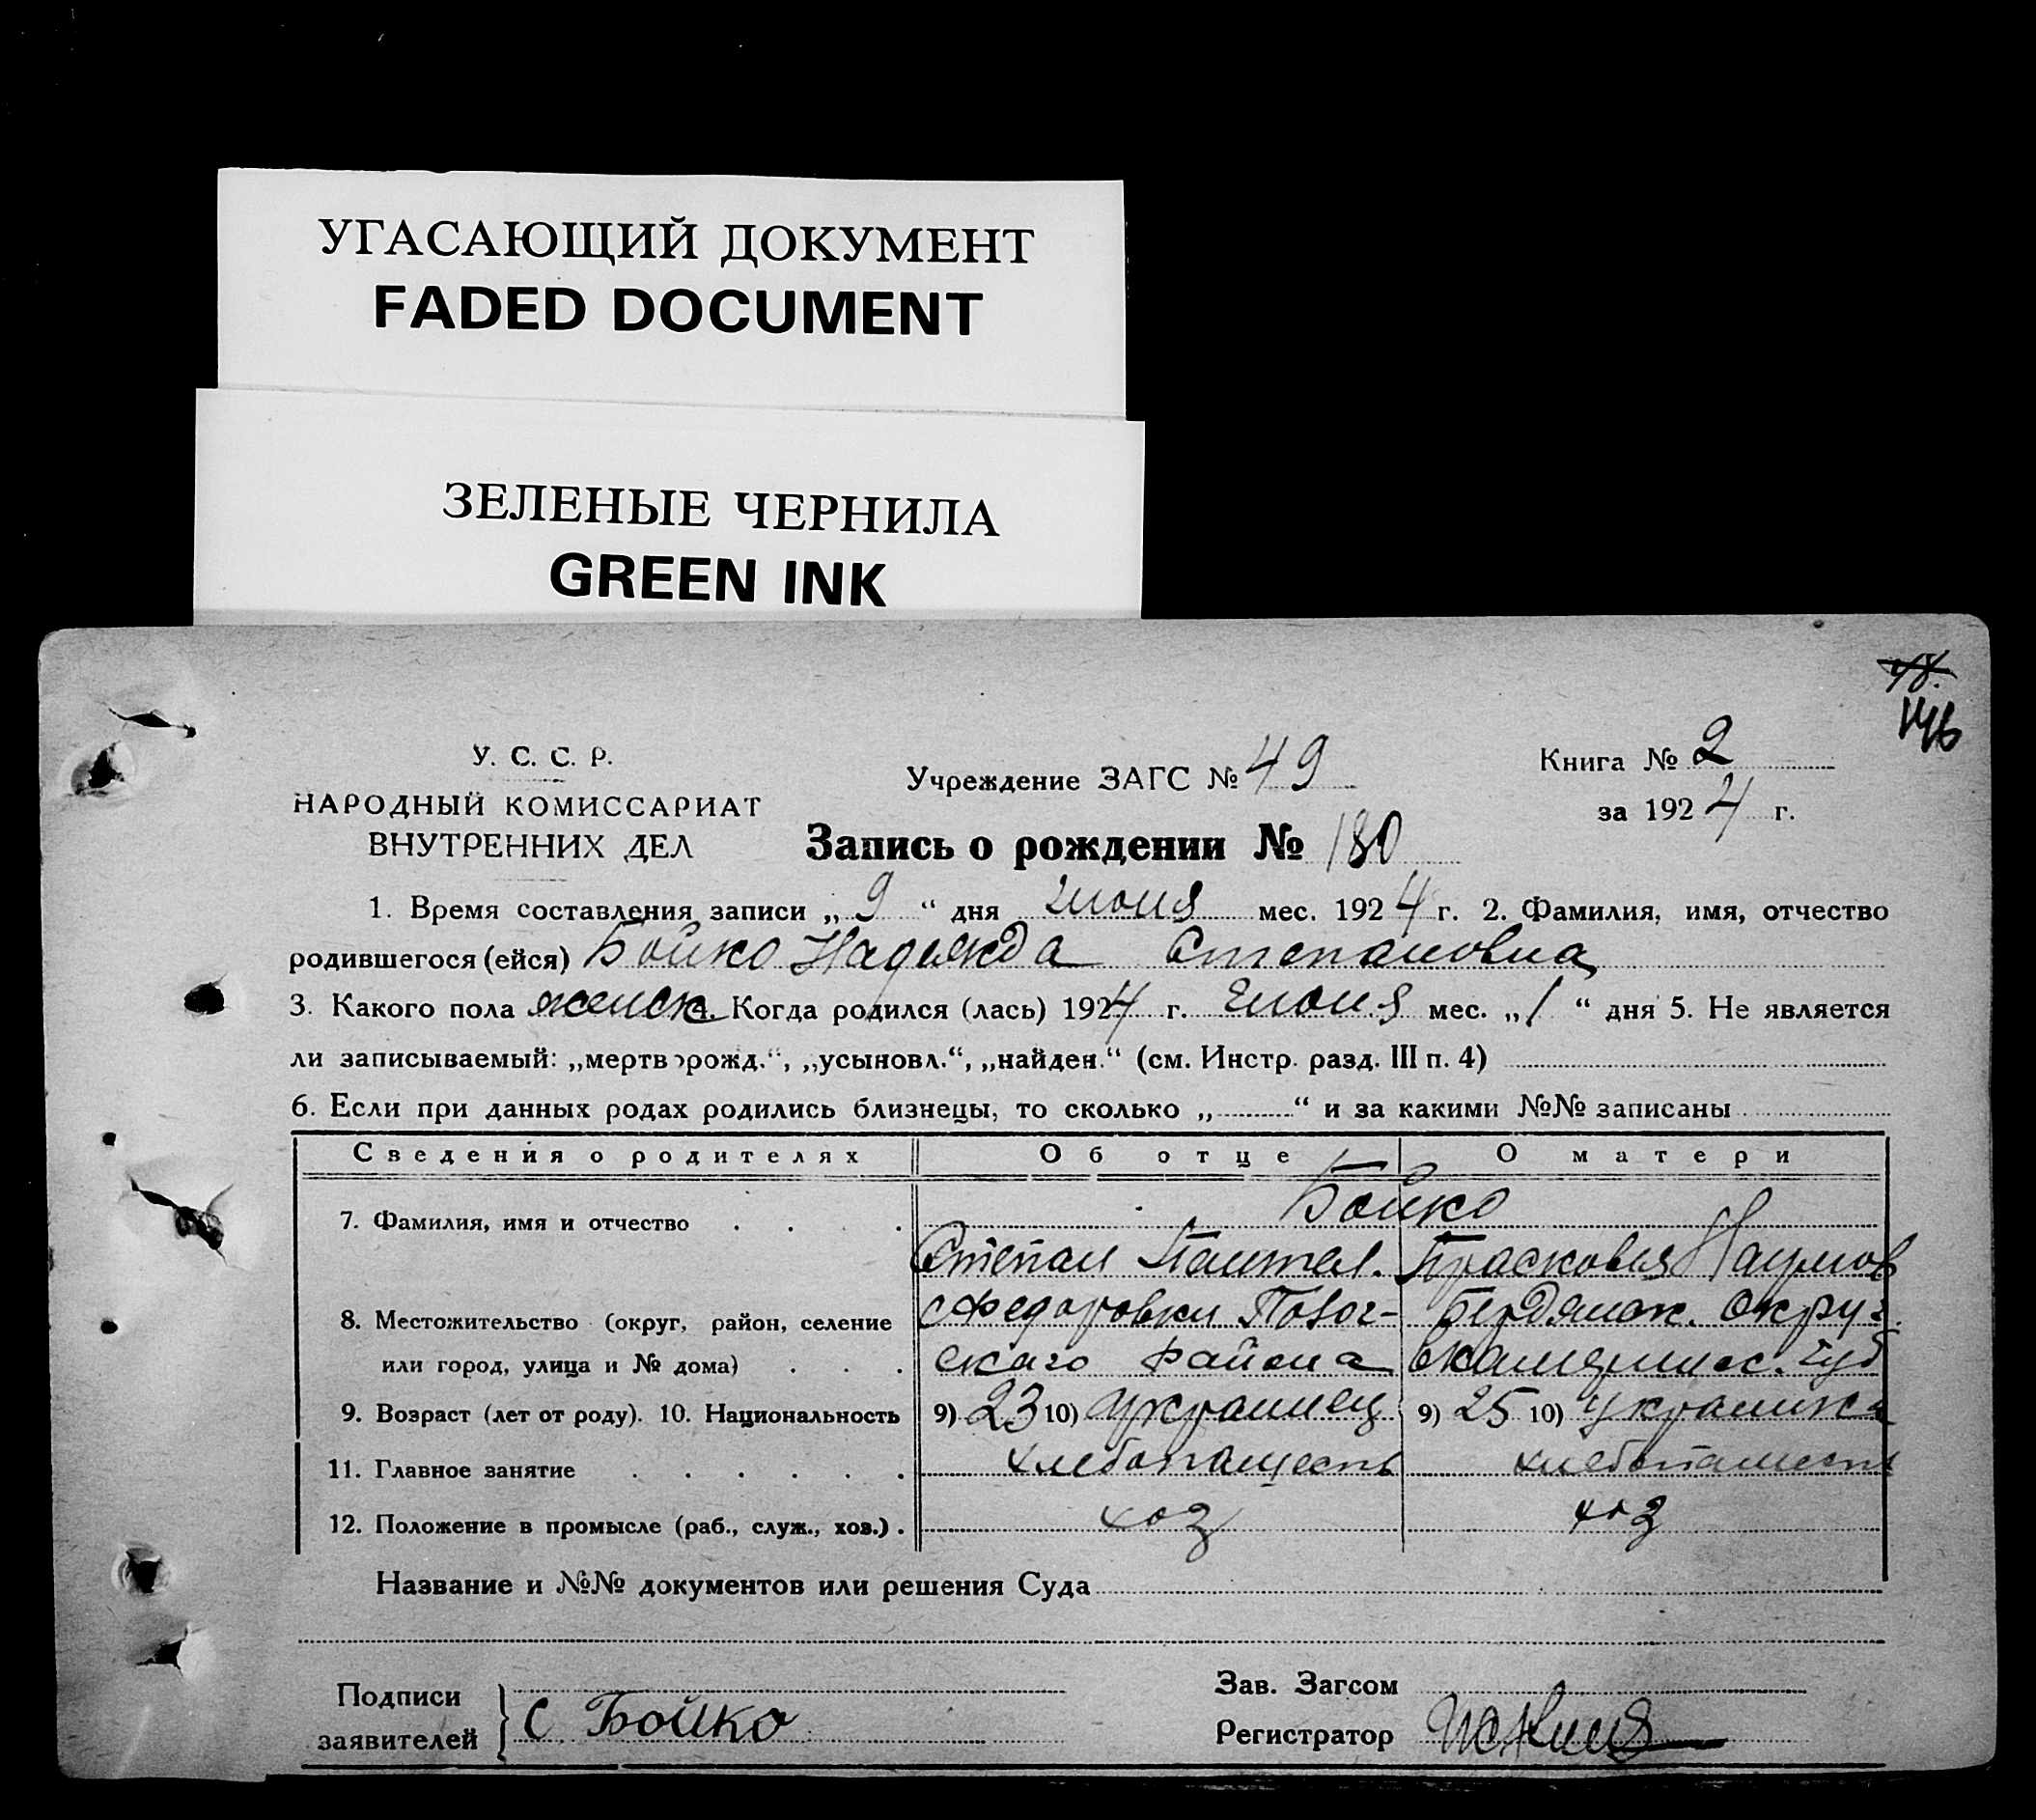 УГАСАЮЩИЙ ДОКУМЕНТ
FADED DOCUMENT
ЗЕЛЕНЫЕ ЧЕРНИЛА
GREEN INK
146
У. С. С. Р.
НАРОДНЫЙ КОМИССАРИАТ
ВНУТРЕННИХ ДЕЛ
Учреждение ЗАГС № 49
Книга № 2
за 1924 г.
Запись о рождении № 180
1. Время составления записи „ 9 “ дня июня мес. 1924 г. 2. Фамилия, имя, отчество
родившегося (ейся) Бойко Надежда Степановна
3. Какого пола женск 4. Когда родился (лась) 1924 г. июня мес. „ 1 “ дня 5. Не является
ли записываемый: „мертворожд.“, „усыновл.“, „найден.“ (см. Инстр. разд. III п. 4)
6. Если при данных родах родились близнецы, то сколько „ “ и за какими №№ записаны
Сведения о родителях Об отце О матери
7. Фамилия, имя и отчество Бойко
Степан Пантел. Прасковья Наумов
8. Местожительство (округ, район, селение с Федоровки Бердянск. округ.
или город, улица и № дома) ского района Екатеринос. губ
9. Возраст (лет от роду). 10. Национальность 9) 23 10) Украинец 9) 25 10) Украинка
11. Главное занятие хлебопашест хлебопашест
12. Положение в промысле (раб., служ., хоз.) хоз хоз
Название и №№ документов или решения Суда
Подписи
заявителей С Бойко
Зав. Загсом
Регистратор